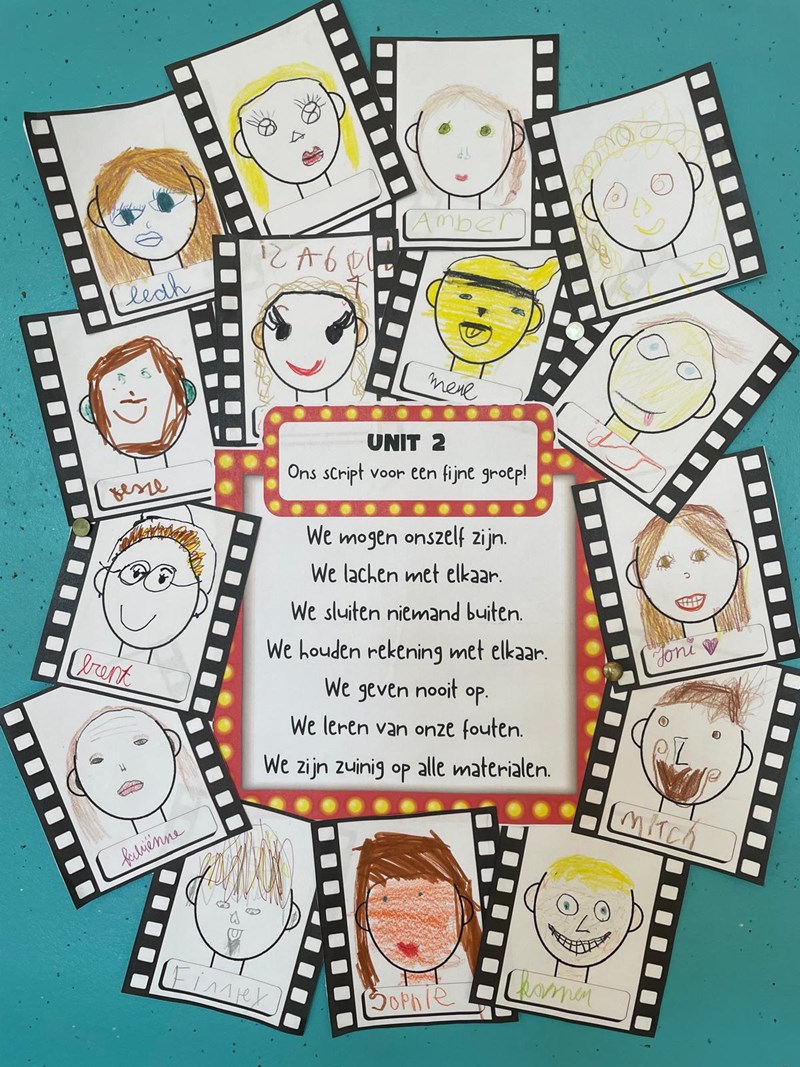 Amber
leah
Jesse
brent
fabiënne
UNIT 2
Ons script voor een fijne groep!
We mogen onszelf zijn.
We lachen met elkaar.
We sluiten niemand buiten.
We houden rekening met elkaar.
We geven nooit op.
We leren van onze fouten.
We zijn zuinig op alle materialen.
Joni
Mitch
Sophie